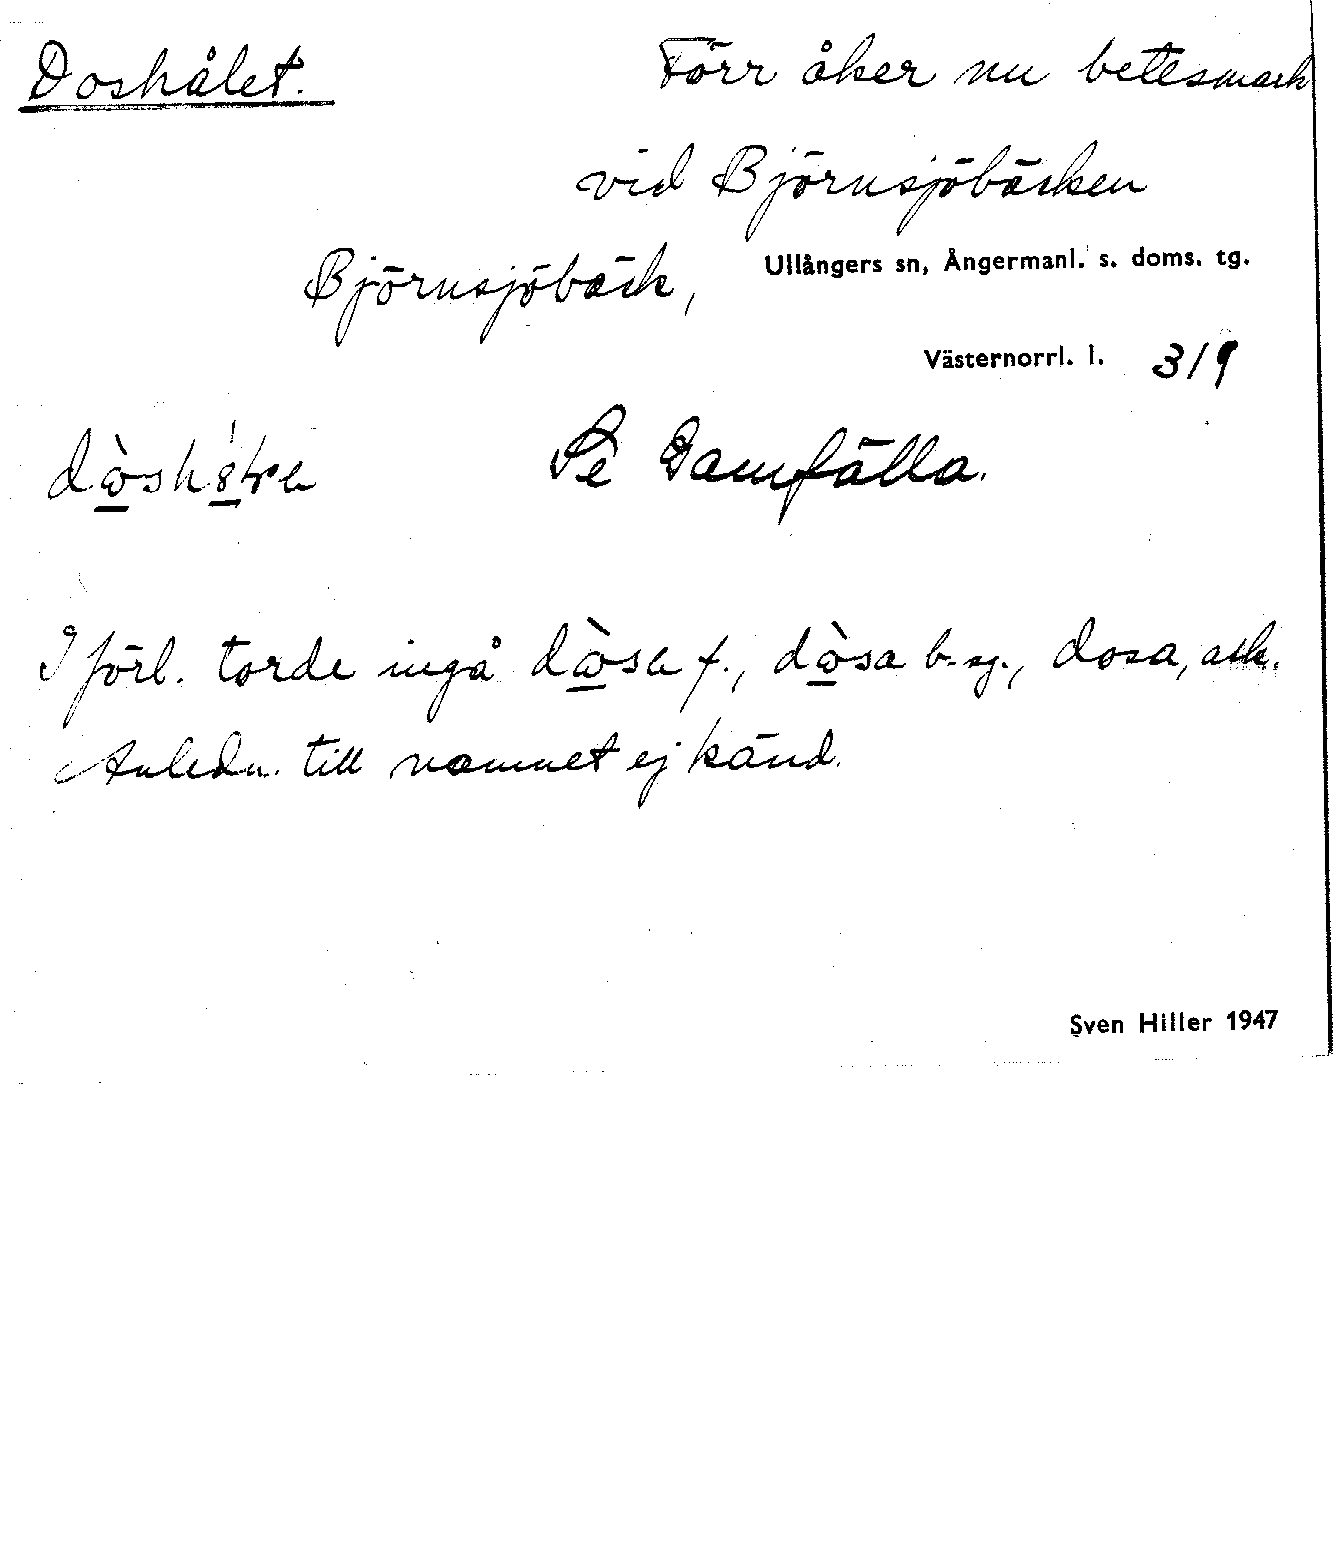 Doshålet. Förr åker nu betesmark
vid Björnsjöbäcken
Björnsjöbäck, Ullångers sn, Ångermanl. s. doms. tg.
Västernorrl. l. 3/9
Se Samfälla.
I förl. torde ingå f., b. sg., dosa, ask.
Anledn. till namnet ej känd.
Sven Hiller 1947